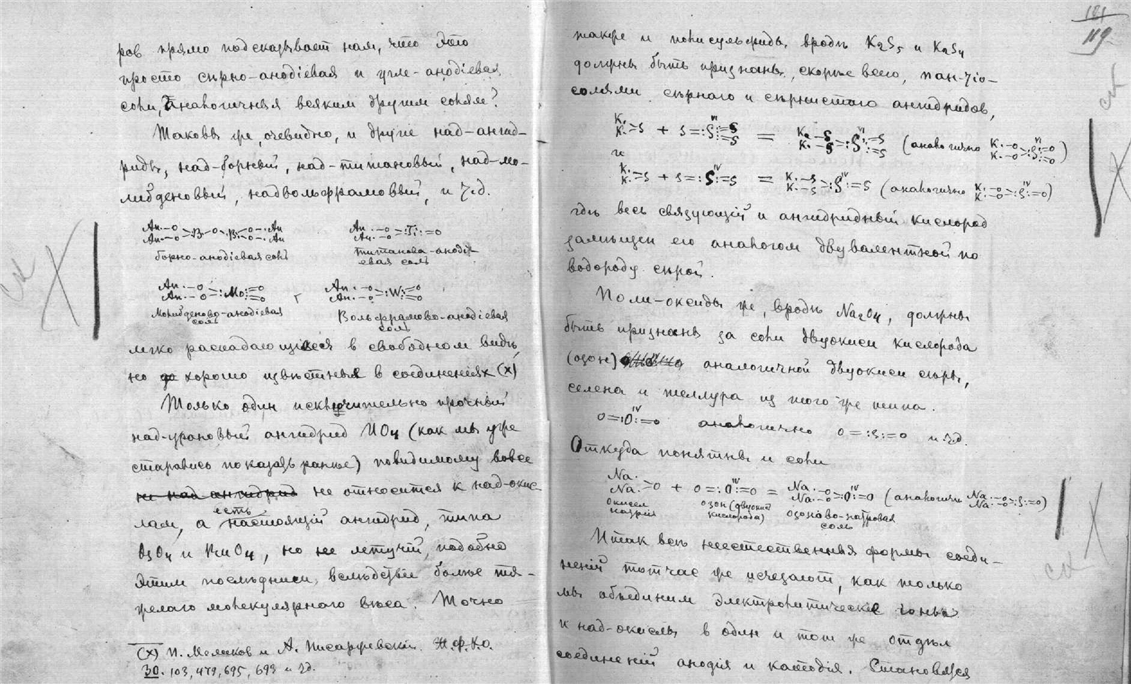 ров прямо подсказывает нам, что это
просто сѣрно-анодіевая и угле-анодіевая
соли, аналогичныя всякимъ другимъ солямъ?
Таковы же, очевидно, и другіе над-ангид-
риды, над-борный, над-титановый, над-мо-
либденовый, надвольфрамовый, и т.д.
An.–O An.–O >B–O–B< O–.An O–.An
An.–O An.–O >:Ti:=O
борно-анодіевая соль
титаново-анодіевая соль
An.–O An.–O >:Mo:=O =O
An.–O An.–O >:W:=O =O
Молибденово-анодіевая соль
Вольфрамово-анодіевая соль
легко распадающіеся в свободном видѣ
но хорошо извѣстныя в соединеніях (x)
Только один исключительно прочный
над-урановый ангидрид UO4 (как мы уже
старались показать раньше) повидимому вовсе
не относится к над-окис-
лам, а есть настоящій ангидрид, типа
OsO4 и RuO4, но не летучій, подобно
этим послѣдним, вслѣдствіе болѣе тя-
желаго молекулярного вѣса. Точно
(x) П. Меликов и Л. Писаржевскій. Ж.Ф.Х.О.
30. 103, 479, 695, 699 и т.д.
181
119
также и полисульфиды, вродѣ K2S5 и K2S4
должны быть признаны, скорѣе всего, пан-тіо-
солями сѣрного и сѣрнистаго ангидридов,
K. K. >S + S=:S:=S =S = K.–S K.–S >S:=S =S (аналогично K.–O K.–O >S:=O =O)
и
K. K. >S + S=:S:=S = K.–S K.–S >S:=S (аналогично K.–O K.–O >S:=O)
гдѣ весь связующій и ангидридный кислород
замѣщен его аналогом двувалентной по
водороду сѣрой.
Поли-оксиды же, вродѣ Na2O4, должны
быть признаны за соли двуокиси кислорода
(озон) аналогичной двуокиси сѣры,
селена и теллура из того же типа.
O=:O:=O аналогично O=:S:=O и т.д.
Откуда понятны и соли
Na. Na. >O + O=:O:=O = Na.–O Na.–O >O:=O (аналогично Na.–O Na.–O >S:=O)
окисел натрія
озон (двуокись кислорода)
озоново-натровая соль
Итак всѣ неестественныя формы соеди-
неній тотчас же исчезают, как только
мы объединим электролитическіе іоны
и над-окислы в один и тот же отдѣл
соединеній анодія и катодія. Становятся